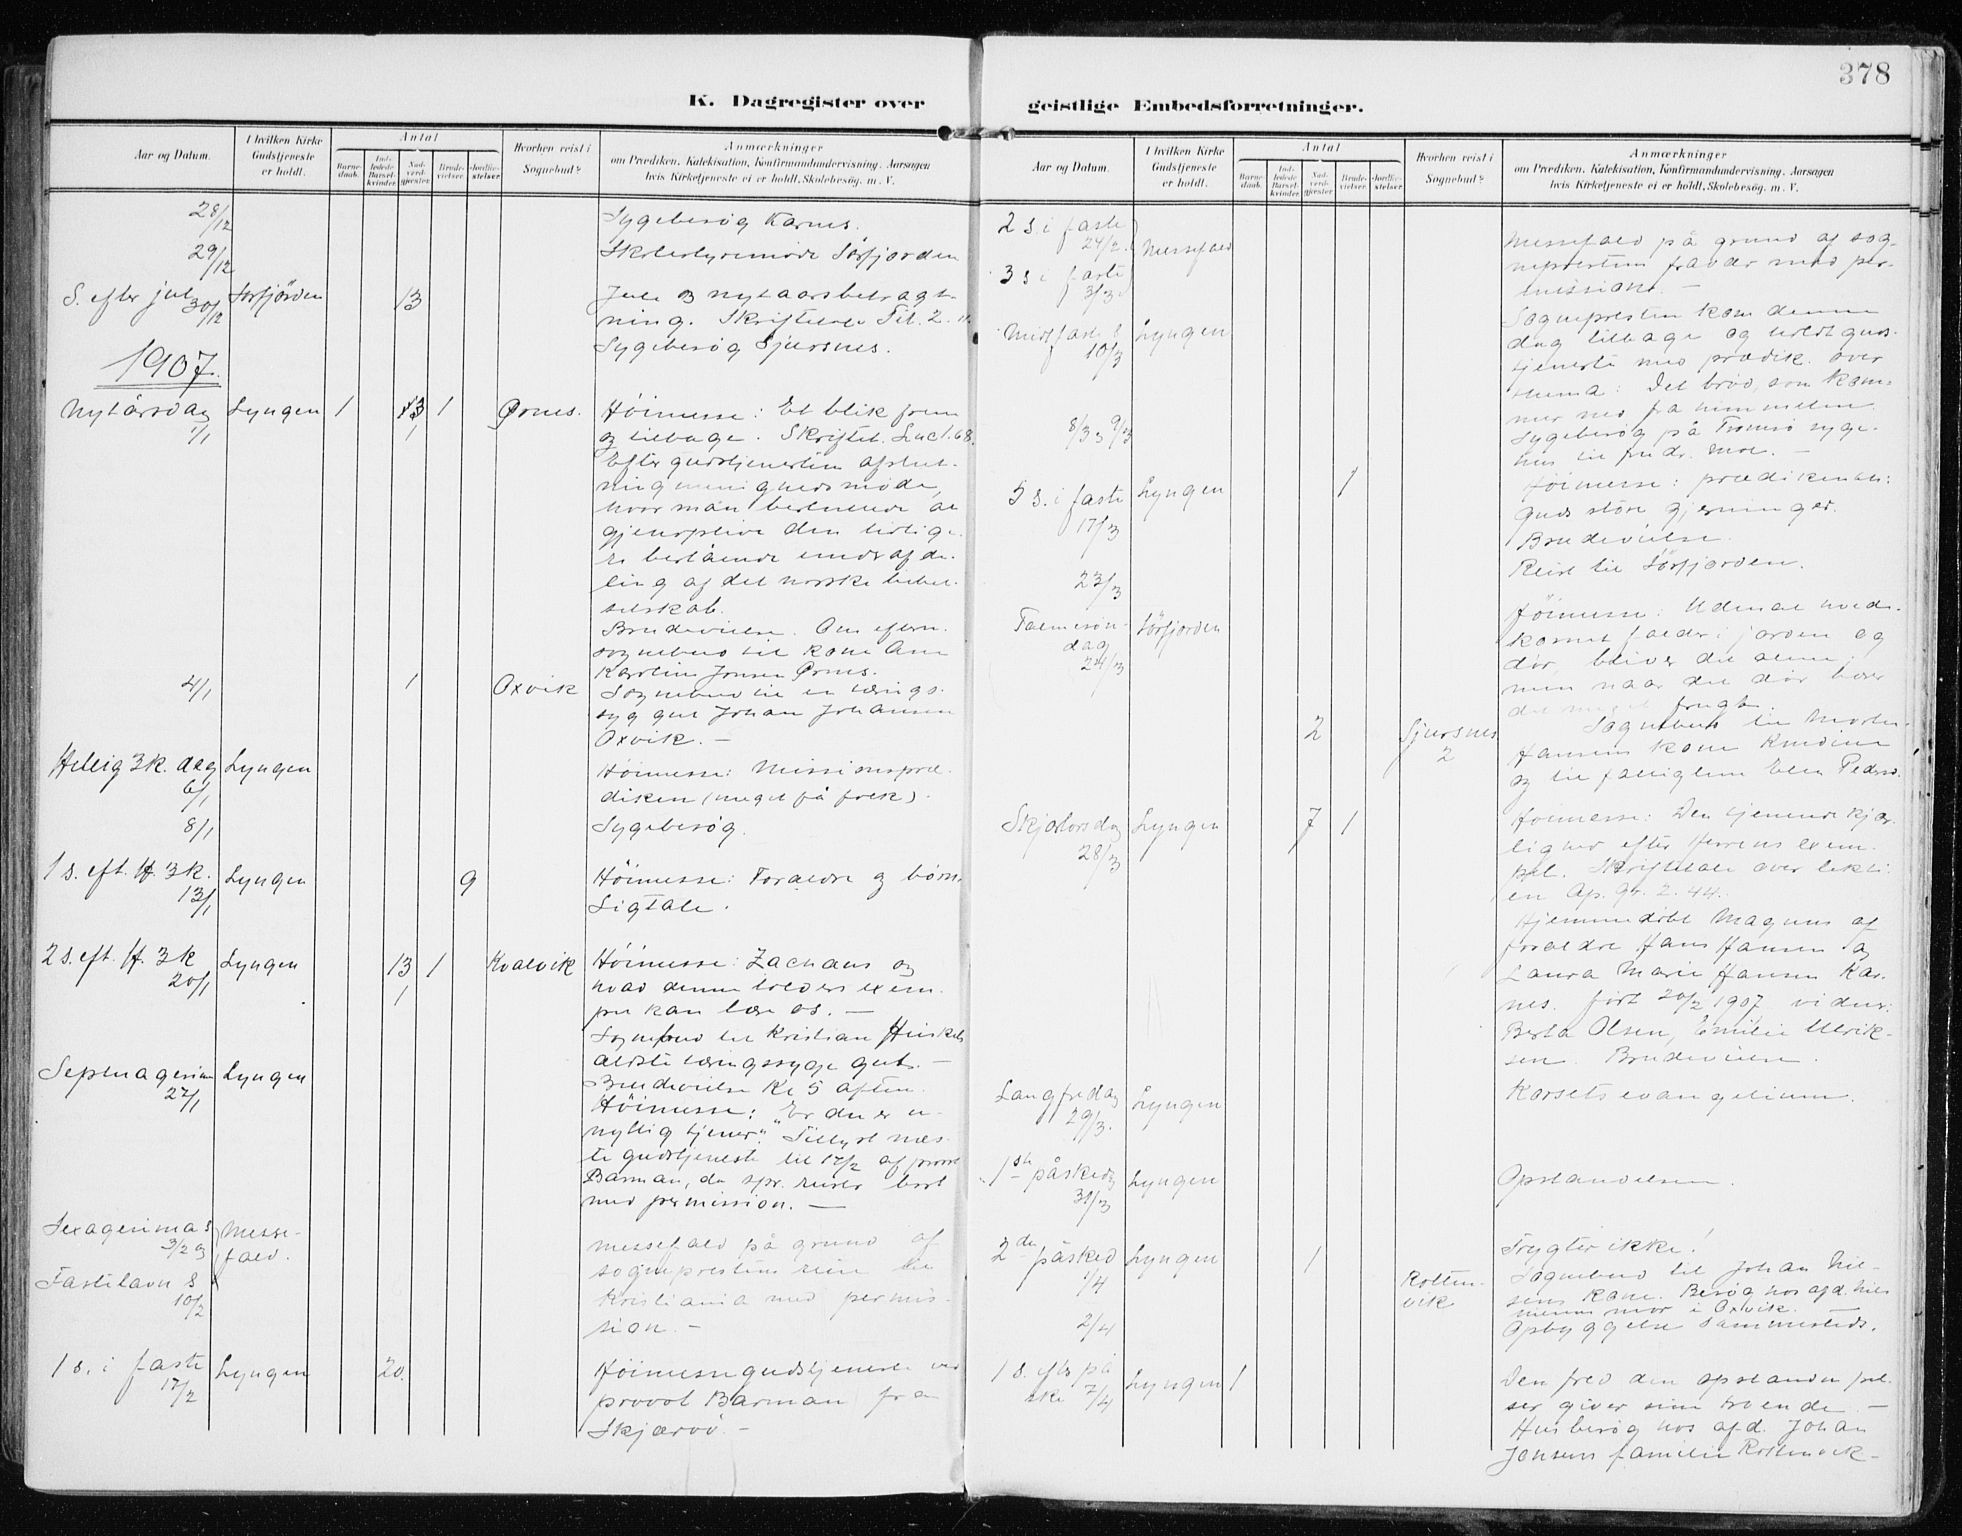 378
K. Dagregister over geistlige Embedsforretninger.
Aar og Datum.
I hvilken Kirke Gudstjeneste er holdt.
Antal
Barnedaab.
Indledede Barselkvinder.
Nadverdgjester
Brudevielser.
Jordfæstelser
Hvorhen reist i Sognebud?
Anmærkninger
om Prædiken, Katekisation, Konfirmandundervisning, Aarsagen
hvis Kirketjeneste ei er holdt, Skolebesøg. m. V.
28/12 Sygebesøg Karnes.
29/12 Skolestyremøde Sörfjorden
S. efter jul 30/12 Sörfjörden 13 Jule og nytaarsbetragt-
ning. Skriftetale Tit. 2. 11.
Sygebesøg Sjursnes.
1907.
Nytårsdag 1/1 Lyngen 1 13 1 1 Ørnes. Höimesse: Et blik frem
og tilbage. Skriftet. Luc 1. 68.
Efter gudstjenesten afslut-
ning menighedsmöde,
hvor man besluttede at
gjenoplive den tidlige-
re bestående underafde-
ling af det norske bibel-
selskab.
Brudevielse. Om efterm.
sognebud til kone Ane
Karolin Jonsen Ørnes.
4/1 1 Oxvik Sognebud til en tærings-
syg gut Johan Johansen
Oxvik. —
Hellig 3 k. dag 6/1 Lyngen Höimesse: Missionspræ-
diken (meget få folk).
8/1 Sygebesøg.
1 s. eft. H. 3 k. 13/1 Lyngen 9 Höimesse: Forældre og børn.
Ligtale.
2 s. eft. H. 3 k 20/1 Lyngen 13 1 1 Kvalvik Höimesse: Zachæus og
hvad denne tolders exem-
pel kan lære os. —
Sognebud til Kristian
ældste tæringssyge gut. —
Brudevielse kl 5 aften.
Septuagesima 27/1 Lyngen Höimesse: "Er du en u-
nyttig tjener". Tillyst næs-
te gudstjeneste til 17/2 af provst
Barman, da spr. reiser bort
med permission. —
Sexagesima s 3/2 og Messe-
fald.
Fastelavn s 10/2 Messefald på grund af
sogneprestens reise til
Kristiania med permis-
sion. —
1 s. i faste 17/2 Lyngen 20. Höimessegudstjeneste ved
provst Barman fra
Skjærvö. —
Aar og Datum.
I hvilken Kirke Gudstjeneste er holdt.
Antal
Barnedaab.
Indledede Barselkvinder.
Nadverdgjester
Brudevielser.
Jordfæstelser
Hvorhen reist i Sognebud?
Anmærkninger
om Prædiken, Katekisation, Konfirmandundervisning, Aarsagen
hvis Kirketjeneste ei er holdt, Skolebesøg. m. V.
2 s. i faste 24/2. Messefald Messefald på grund af sog-
3 s i faste 3/3. neprestens fravær med per-
mission. —
Midtfaste s 10/3 Lyngen Sognepresten kom denne
dag tilbage og holdt guds-
tjeneste med prædik. over
thema: Det brød, som kom-
mer ned fra himmelen.
8/3 9/3 Sygebesøg på Tromsö syge-
hus til fredr. Moe. —
5 s. i faste 17/3 Lyngen 1 Höimesse: prædiken om:
Guds störe gjerninger.
Brudevielse.
23/3 Reist til Sörfjorden.
Palmesön-
dag 24/3 Sörfjorden Höimesse: Uden at hvede-
kornet falder i jorden og
dør, bliver det alene,
men naar det dør bærer
det meget frugt.
2 Sjursnes 2 Sognebud til Morten
Hansens kone Knudine
og til fattiglem Elen Peders.
Skjærtorsdag 28/3 Lyngen 7 1 Höimesse: Den tjenende kjær-
lighed efter Herrens exem-
pel. Skriftetale over lekti-
en Ap. gr. 2. 44.
Hjemmedöbt Magnus af
forældre Hans Hansen og
Laura Marie Hansen Kar-
nes. født 20/2 1907 vidner:
Berta Olsen, Emilie Ulrik-
sen. Brudevielse.
Langfredag 29/3. Lyngen Korsets evangelium.
1ste påskedag 31/3 Lyngen Opstandelsen.
2den påsked 1/4 Lyngen 1 Rotten-
vik Frygter ikke!
Sognebud til Johan Niel-
sens kone. Besøg hos afd.
mor i Oxvik.
2/4 Opbyggelse sammesteds.
1 s. efter på-
ske 7/4 Lyngen 1 Den fred den opstandne frel-
ser giver sine troende. —
Husbesøg hos afd. Johan
Jonsens familie Rottenvik —